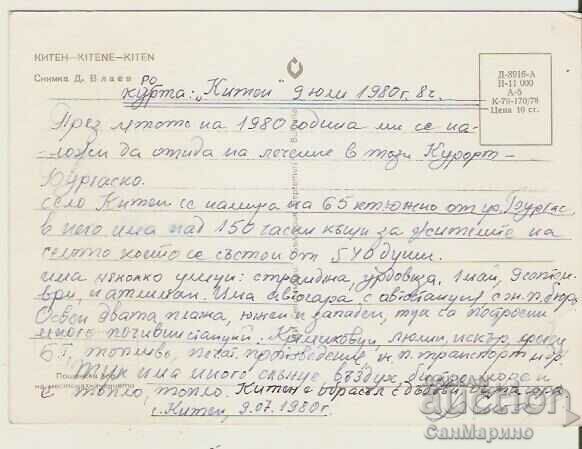 КИТЕН—KITENE—KITEN
Снимка Д. Влаев
Д-8916-А
II-11 000
А-5
К-79-170/78
Цена 10 ст.
РО
курта: „Китен" 9 юли 1980г. 8ч.
През лятото на 1980 година ми се на-
ложи да отида на лечение в този Курорт-
Бургаско.
село Китен се намира на 65 км южно от гр. Бургас,
в него има над 150 частни къщи за жителите на
селото което се състои от 540 души.
има няколко улици: странджа, Урдовиза, 1 май, 9 септем-
ври, и атлиман. Има автогара с автостанция с ж.п. бюро.
Освен двата плажа, южен и западен, тук са построени
много почивни станции. Кремиковци, люлин, искър,
БТ, топливо, печат, произведение и п. транспорт и др.
Тук има много слънце въздух, море и
е топло, топло. Китен е обрасъл с дъбови, гора
с. Китен, 9.07.1980г.
auction
СанМарино